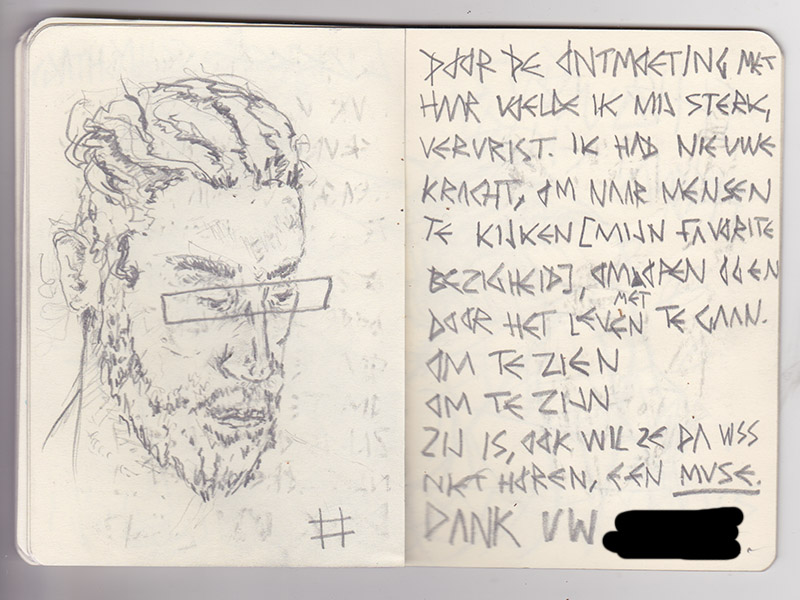 #
DOOR DE ONTMOETING MET
HAAR VOELDE IK MIJ STERK,
VERVRIST. IK HAD NIEUWE
KRACHT, OM NAAR MENSEN
TE KIJKEN [MIJN FAVORITE
BEZIGHEID], OM OPEN OGEN
MET
DOOR HET LEVEN TE GAAN.
OM TE ZIEN
OM TE ZIJN
ZIJ IS, OOK WIL ZE DA WSS
NIET HOREN, EEN MUSE.
DANK UW